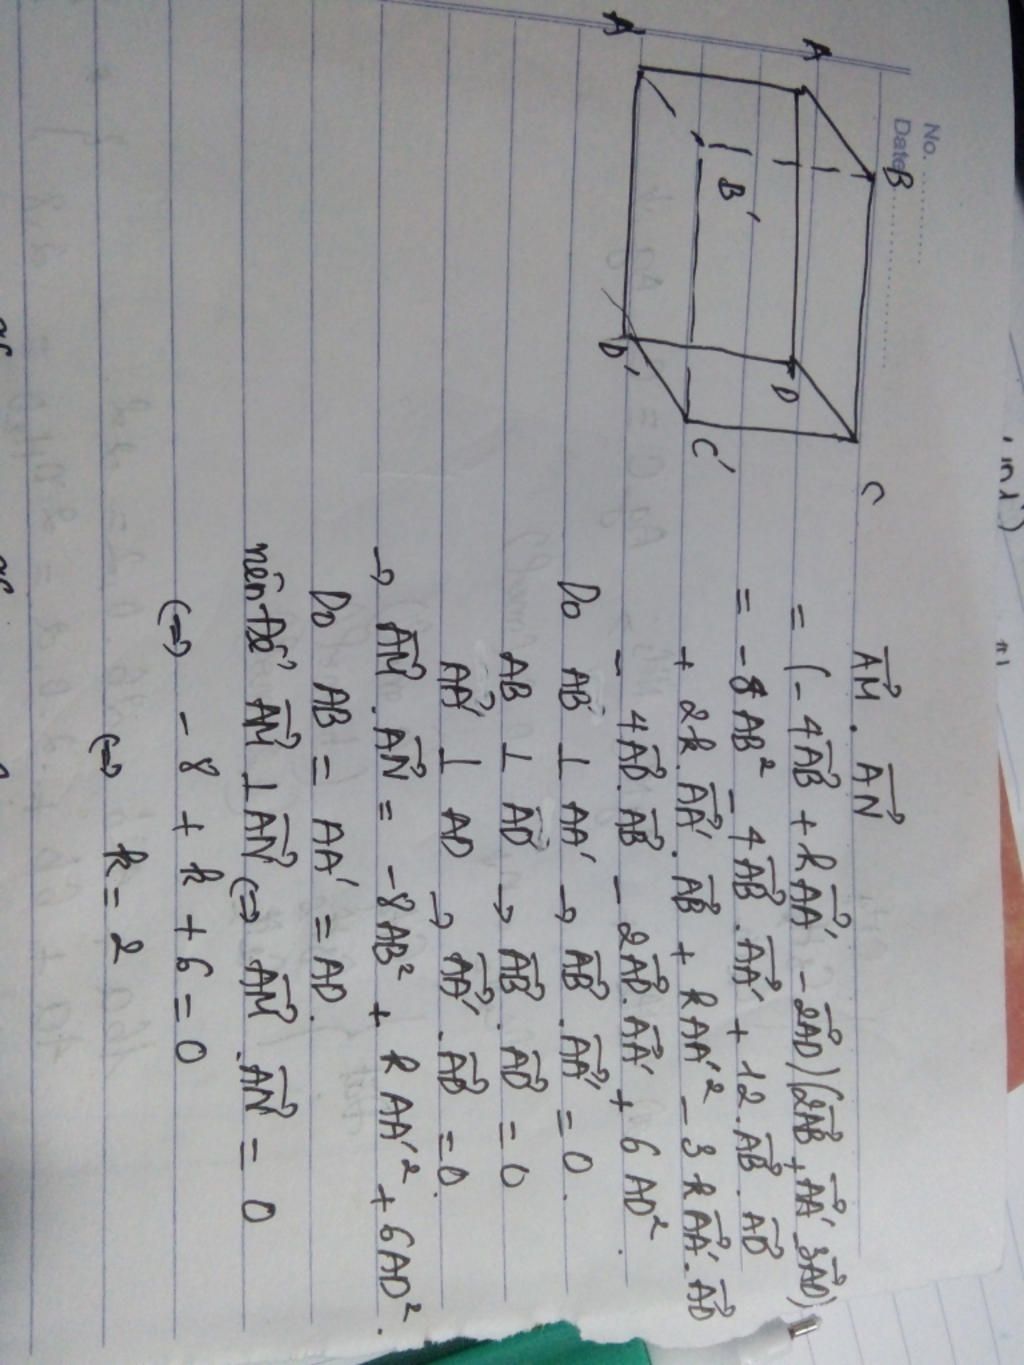 No.
Date
A
B
A
B'
D
D'
C'
C
AM⃗ . AN⃗
= (- 4AB⃗ + kAA'⃗ - 2AD⃗)(2AB⃗ + AA'⃗ - 3AD⃗)
= - 8AB² - 4AB⃗ . AA'⃗ + 12 . AB⃗ . AD⃗
+ 2k . AA'⃗ . AB⃗ + kAA'² - 3kAA'⃗ . AD⃗
- 4AD⃗ . AB⃗ - 2AD⃗ . AA'⃗ + 6AD² .
Do AB ⊥ AA' → AB⃗ . AA'⃗ = 0 .
AB ⊥ AD → AB⃗ . AD⃗ = 0
AA' ⊥ AD → AA'⃗ . AD⃗ = 0 .
→ AM⃗ . AN⃗ = -8AB² + kAA'² + 6AD² .
Do AB = AA' = AD .
nên để AM⃗ ⊥ AN⃗ (=) AM⃗ . AN⃗ = 0
(=) - 8 + k + 6 = 0
(=) k = 2